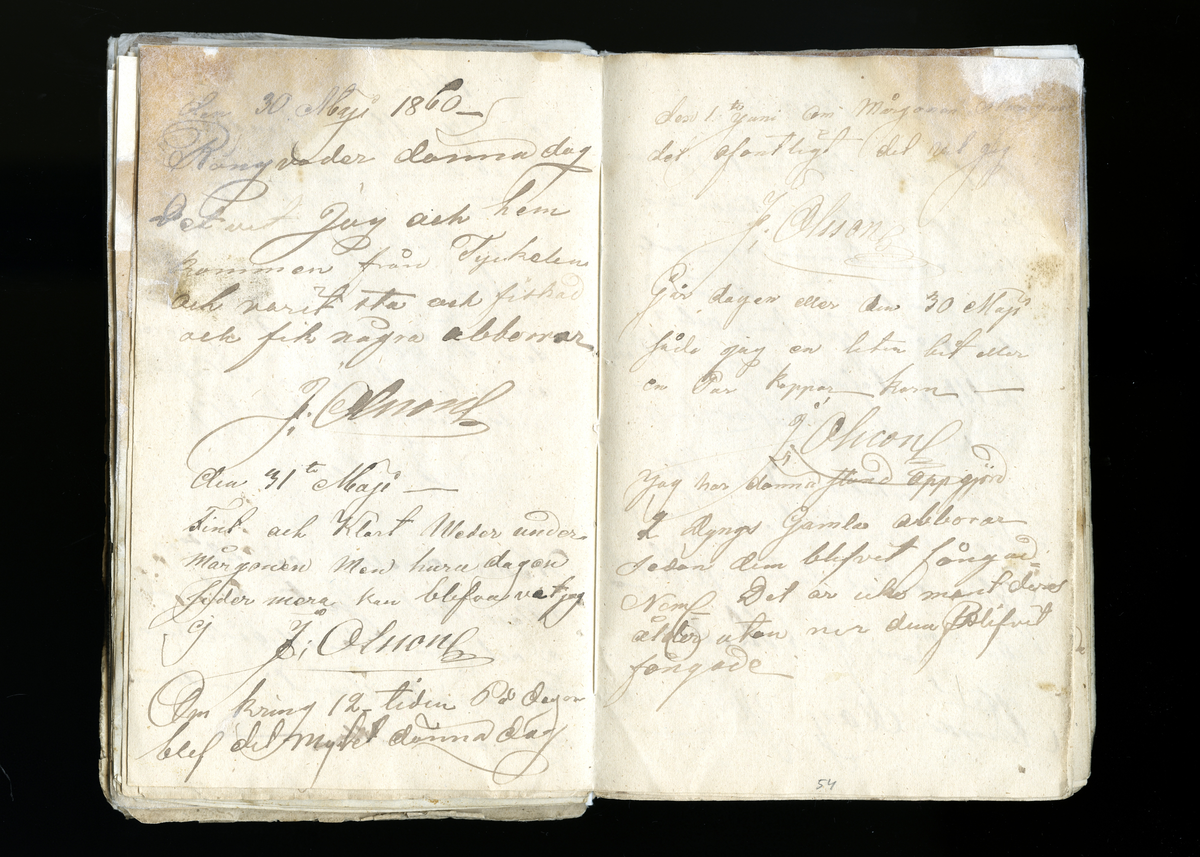 den 30 Maji 1860 –
Rängväder dännadag
Det vet Jag och hem
kommen från Tyckelen
och varit sta och fiskad
och fik några abborrar
J. Olsson
den 31te Maji —
Fint och Klart Weder under
mårgonen Men huru dagen
Jider mera kan blefva vet jag
ej J; Olsson
Om kring 12-tiden På dagen
blef det mycket dänna dag
den 1.te Juni om Mårgonen
det ofantligt det vet jag
J. Olsson
Går dagen eller den 30 Maji
sådе jag en liten bit eller
en Par kappar korn —
J Olsson
Jag har dänna stund oppgjörd
2 dyngs Gamla abborar
sedan dem blefvet fångad
Neml. Det är icke mast deras
ålder utan ner dem Blifvit
fångade
54